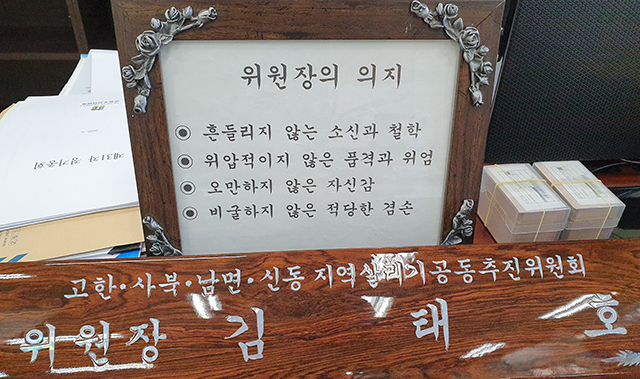 위원장의 의지
◉ 흔들리지 않는 소신과 철학
◉ 위압적이지 않은 품격과 위엄
◉ 오만하지 않은 자신감
◉ 비굴하지 않은 적당한 겸손
제31차 정기총회
고한·사북·남면·신동 지역살리기공동추진위원회
위원장 김태호